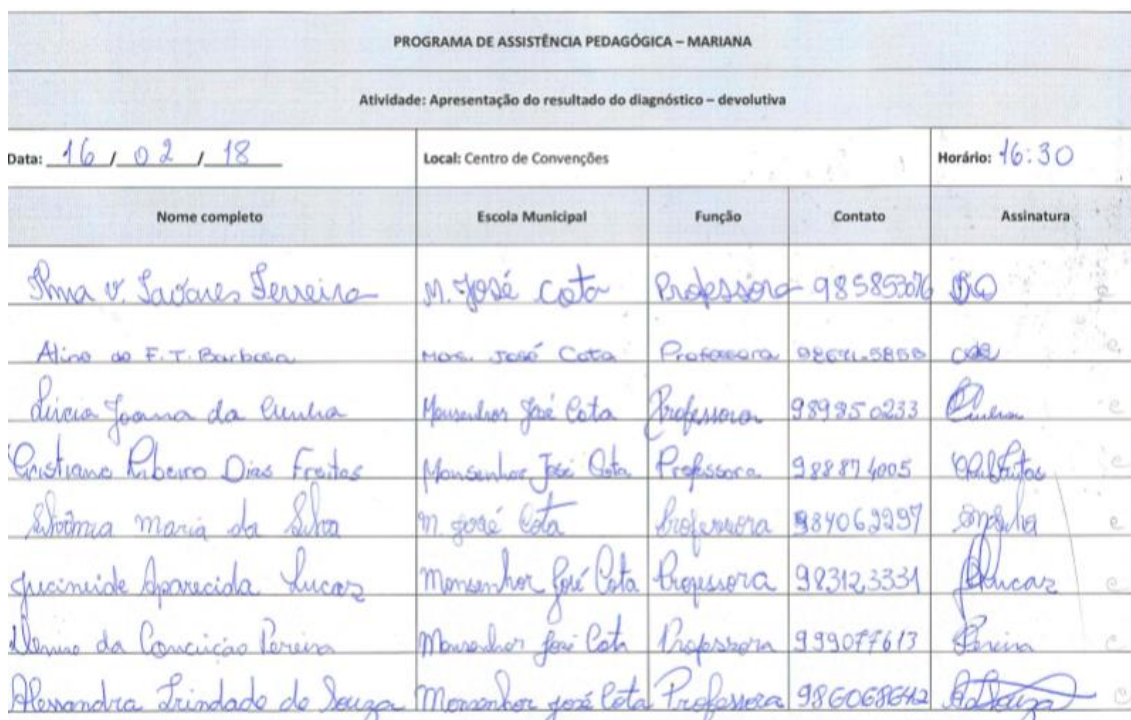 PROGRAMA DE ASSISTÊNCIA PEDAGÓGICA – MARIANA
Atividade: Apresentação do resultado do diagnóstico – devolutiva
Data: 16 / 02 / 18 Local: Centro de Convenções Horário: 16:30
Nome completo Escola Municipal Função Contato Assinatura
V. Tavares Ferreira M. José Cota Professora
Aline de F. T. Barbosa Mons. José Cota Professora
Lúcia Joana da Cunha Monsenhor José Cota Professora 989850233
Cristiane Ribeiro Dias Freitas Monsenhor José Cota Professora 988874005
Maria da Silva M. José Cota Professora 984062297
Jucineide Aparecida Lucas Monsenhor José Cota Professora 983123331
da Conceição Pereira Monsenhor José Cota Professora 999077613
Alessandra Trindade de Souza Monsenhor José Cota Professora 986068642